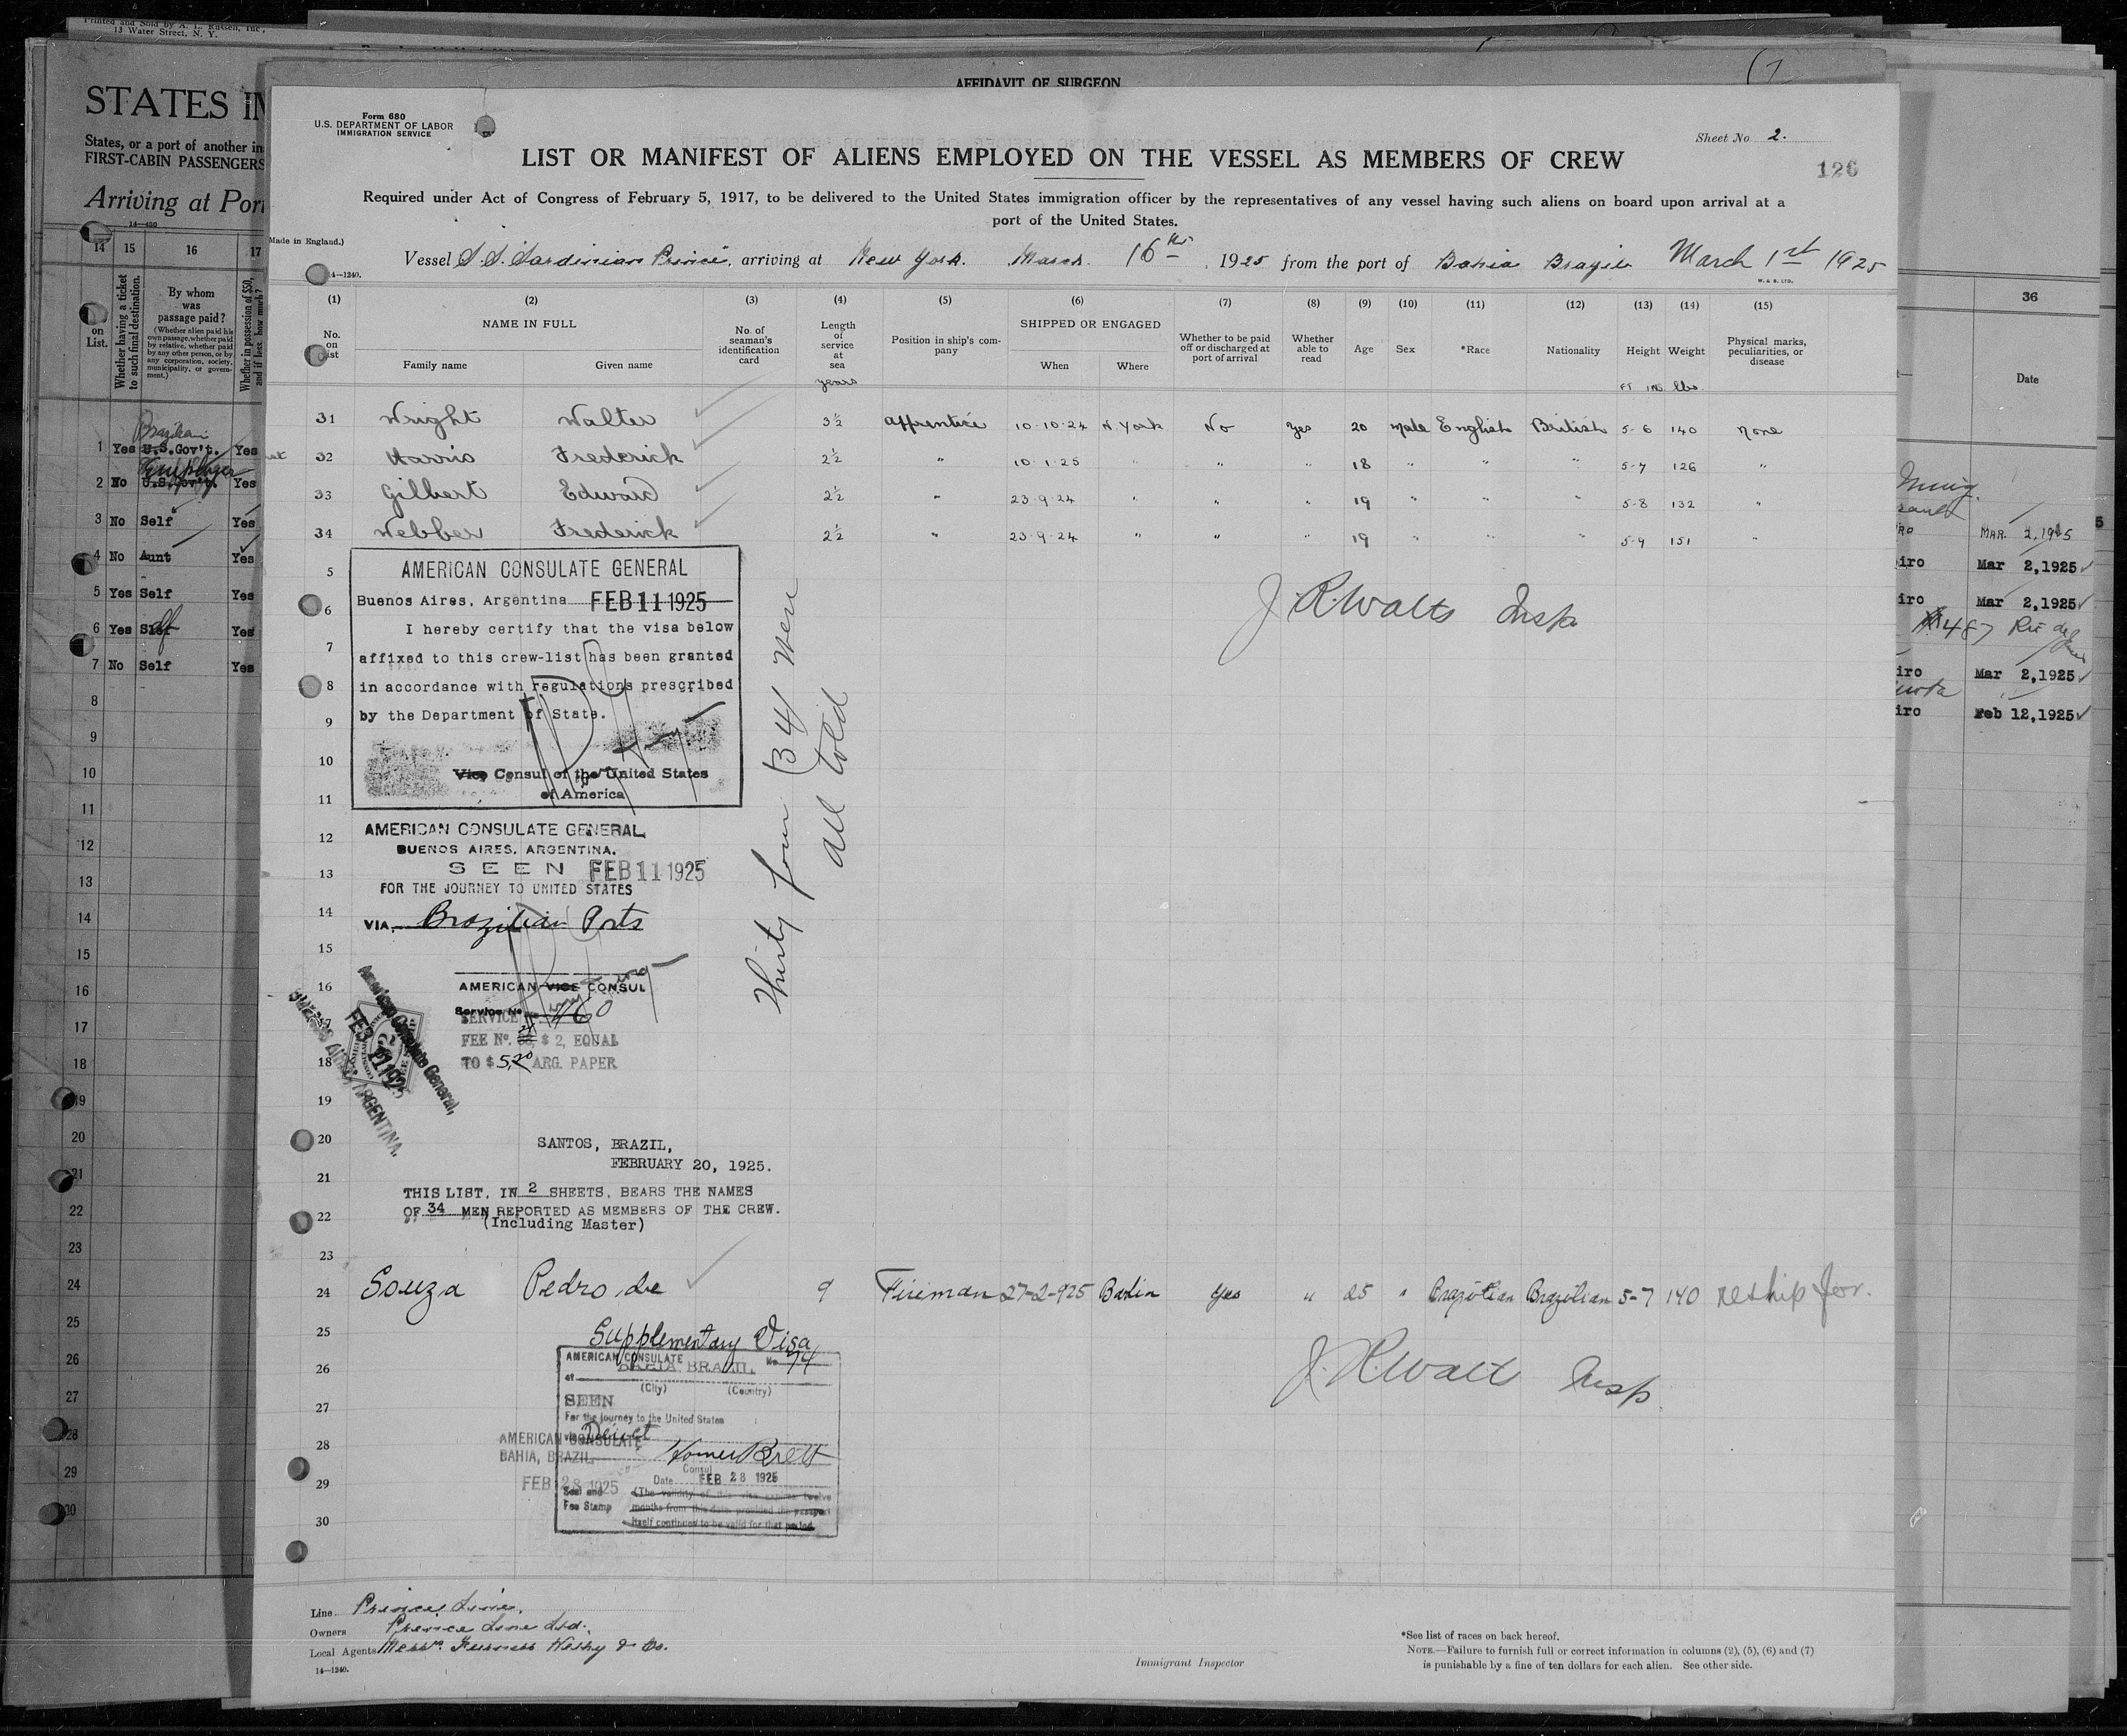 Printed and Sold by A. L. Russell, Inc.,
13 Water Street, N. Y.
AFFIDAVIT OF SURGEON
STATES
States, or a port of another
FIRST-CABIN PASSENGERS
Arriving at Port
14—430
14 15 16 17
on List.
Whether having a ticket to such final destination.
By whom was passage paid?
(Whether alien paid his own passage, whether paid by relative, whether paid by any other person, or by any corporation, society, municipality, or government.)
Whether in possession of $50, and if less, how much?
Brazilian
1 Yes U.S.Gov't. Yes
Employer
2 No U.S.Gov't. Yes
3 No Self Yes
4 No Aunt Yes
5 Yes Self Yes
6 Yes Self Yes
7 No Self Yes
8
9
10
11
12
13
14
15
16
17
18
19
20
21
22
23
24
25
26
27
28
29
30
Form 680
U.S. DEPARTMENT OF LABOR
IMMIGRATION SERVICE
Sheet No 2.
LIST OR MANIFEST OF ALIENS EMPLOYED ON THE VESSEL AS MEMBERS OF CREW
126
Required under Act of Congress of February 5, 1917, to be delivered to the United States immigration officer by the representatives of any vessel having such aliens on board upon arrival at a
port of the United States.
Made in England.)
Vessel S.S. Sardinian Prince, arriving at New York. March 16th, 1925 from the port of Bahia Brazil March 1st 1925
14—1240.
W. & S. LTD.
(1) (2) (3) (4) (5) (6) (7) (8) (9) (10) (11) (12) (13) (14) (15)
No. on List
NAME IN FULL
Family name Given name
No. of seaman's identification card
Length of service at sea
years
Position in ship's company
SHIPPED OR ENGAGED
When Where
Whether to be paid off or discharged at port of arrival
Whether able to read
Age Sex *Race Nationality Height Weight
Physical marks, peculiarities, or disease
FT INS lbs.
31 Wright Walter 3½ apprentice 10.10.24 N York No Yes 20 Male English British 5-6 140 None
32 Harris Frederick 2½ " 10.1.25 " " " 18 " " " 5-7 126 "
33 Gilbert Edward 2½ " 23.9.24 " " " 19 " " " 5-8 132 "
34 Webber Frederick 2½ " 23.9.24 " " " 19 " " " 5-9 151 "
5
6
7
8
9
10
11
12
13
14
15
16
17
18
19
20
21
22
23
AMERICAN CONSULATE GENERAL
Buenos Aires, Argentina FEB 11 1925
I hereby certify that the visa below
affixed to this crew-list has been granted
in accordance with regulations prescribed
by the Department of State.
Vice Consul of the United States
of America
J. R. Walts Insp
Thirty four (34) men
all told
AMERICAN CONSULATE GENERAL
BUENOS AIRES, ARGENTINA.
SEEN FEB 11 1925
FOR THE JOURNEY TO UNITED STATES
VIA. Brazilian Ports
AMERICAN VICE CONSUL
Service No 460
FEE No. 38, $ 2, EQUAL
TO $ 5.20 ARG. PAPER
American Consulate General,
FEB 11 1925
BUENOS AIRES, ARGENTINA.
SANTOS, BRAZIL,
FEBRUARY 20, 1925.
THIS LIST, IN 2 SHEETS, BEARS THE NAMES
OF 34 MEN REPORTED AS MEMBERS OF THE CREW.
(Including Master)
24 Souza Pedro de 9 Fireman 27-2-925 Bahia Yes " 25 " Brazilian Brazilian 5-7 140 reship for.
25
26
27
28
29
30
Supplementary Visa
AMERICAN CONSULATE No 74
at BAHIA BRAZIL.
(City) (Country)
SEEN
For the journey to the United States
via Direct
Homer Brett
Consul
Date FEB 28 1925
Seal and Fee Stamp
(The validity of this visa expires twelve
months from this date provided the passport
itself continues to be valid for that period
AMERICAN CONSULATE
BAHIA, BRAZIL
FEB 28 1925
J. R. Walts Insp.
Line Prince Line.
Owners Prince Line Ltd.
Local Agents Messrs. Furness Withy & Co.
14—1240.
Immigrant Inspector
*See list of races on back hereof.
NOTE.—Failure to furnish full or correct information in columns (2), (5), (6) and (7)
is punishable by a fine of ten dollars for each alien. See other side.
36
Date
MAR. 2, 1925
iro Mar 2,1925
iro Mar 2,1925
487 Rio de
iro Mar 2,1925
iro Feb 12,1925
5